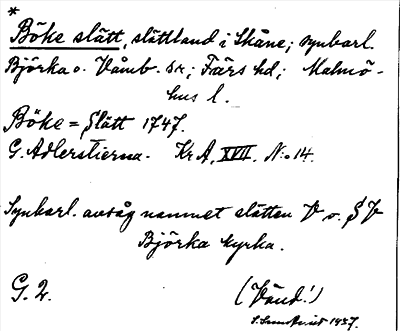 *
Böke slätt, slättland i Skåne; synbarl.
Björka o. Vämb. sn; Färs hd; Malmö-
hus l.
Böke = Slätt 1747.
G. Adlerstierna. Kr A, XVII, N:o 14.
Synbarl. avsåg namnet slätten V o. SV
Björka kyrka.
G. 2.
(Vänd!)
S. Sundqvist 1937.